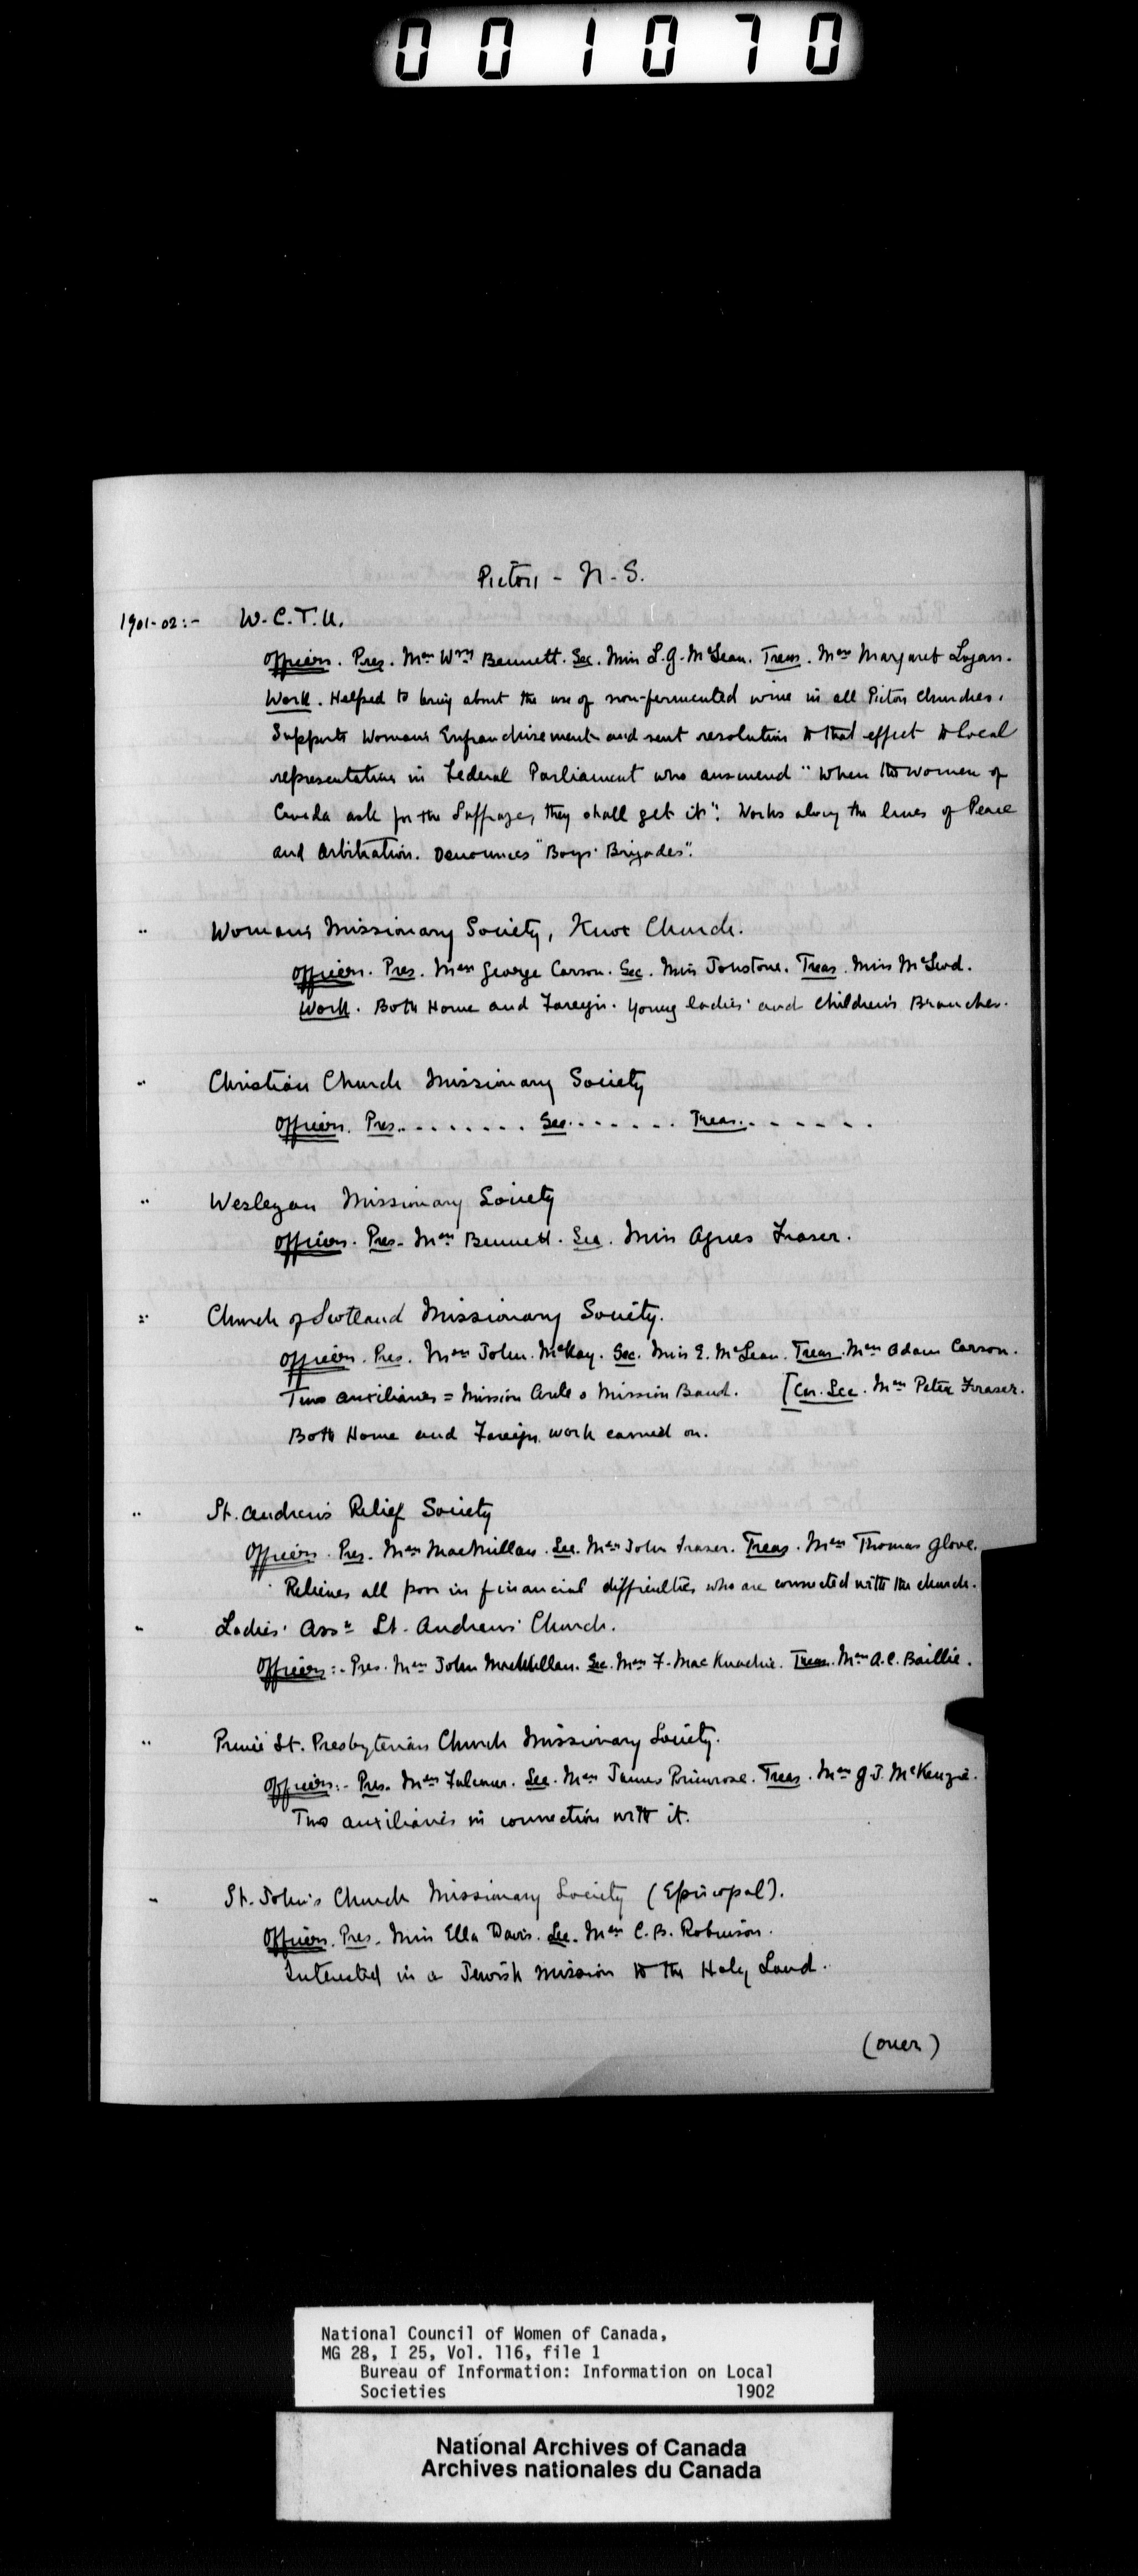 001070
Pictou - N. S.
1901-02:- W. C. T. U.
Officers. Pres. Mrs Wm Bennett. Sec. Miss L. G. McLean. Treas. Mrs Margaret Logan.
Work. Helped to bring about the use of non-fermented wine in all Pictou churches.
Supports Womans Enfranchisement and sent resolution to that effect to local
representative in Federal Parliament who answered "When the women of
Canada ask for the Suffrage, they shall get it". Works along the lines of Peace
and Arbitration. Denounces "Boys' Brigades".
" Womans Missionary Society, Knox Church.
Officers. Pres. Mrs George Carson. Sec. Miss Johstone. Treas. Miss McLeod.
Work. Both Home and Foreign. Young ladies' and Children's Branches.
" Christian Church Missionary Society
Officers. Pres. . . . . . . . . Sec. . . . . . . Treas. . . . . . .
" Wesleyan Missionary Society
Officers. Pres. Mrs Bennett. Sec. Miss Agnes Fraser.
" Church of Scotland Missionary Society.
Officers. Pres. Mrs John McKay. Sec. Miss E. McLean. Treas. Mrs Adam Carson.
Two auxiliaries = Mission Circle & Mission Band. [Cor. Sec. Mrs Peter Fraser.
Both Home and Foreign work carried on.
" St. Andrew's Relief Society
Officers. Pres. Mrs MacMillan. Sec. Mrs John Fraser. Treas. Mrs Thomas Glove.
Relieves all poor in financial difficulties who are connected with the church.
" Ladies' Assn St. Andrews' Church.
Officers:- Pres. Mrs John MacMillan. Sec. Mrs F. Mac Knachie. Treas. Mrs A. C. Baillie.
" Prince St. Presbyterian Church Missionary Society.
Officers:- Pres. Mrs Falconer. Sec. Mrs James Primrose. Treas. Mrs G. J. McKenzie.
Two auxiliaries in connection with it.
" St. John's Church Missionary Society (Episcopal).
Officers. Pres. Miss Ella Davis. Sec. Mrs C. B. Robinson.
Interested in a Jewish mission to the Holy Land.
(over)
National Council of Women of Canada,
MG 28, I 25, Vol. 116, file 1
Bureau of Information: Information on Local
Societies 1902
National Archives of Canada
Archives nationales du Canada